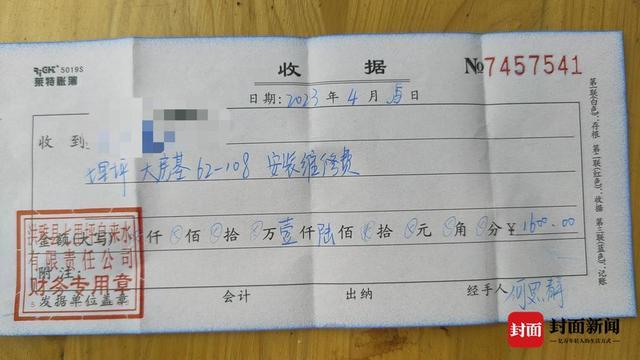 RiGHT 5019S
莱特账簿
收 据
№7457541
日期:2023年4月5日
收到:
埋坪 大房基62-108 安装维修费
金额(大写) 仟⊗佰⊗拾⊗万壹仟陆佰⊗拾⊗元⊗角⊗分¥1600.00
自来水
有限责任公司
财务专用章
附 注:
发据单位盖章
会计
出纳
经手人
第一联(白色):存根 第二联(红色):收据 第三联(蓝色):记账
封面
封面新闻
亿万年轻人的生活方式